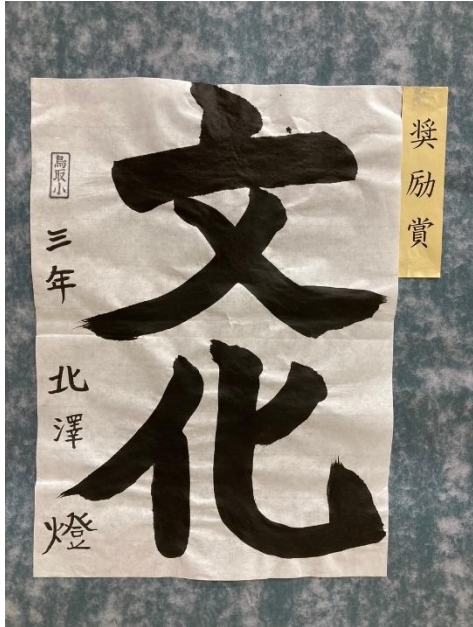 奨励賞
文化
鳥取小
三年 北澤 燈